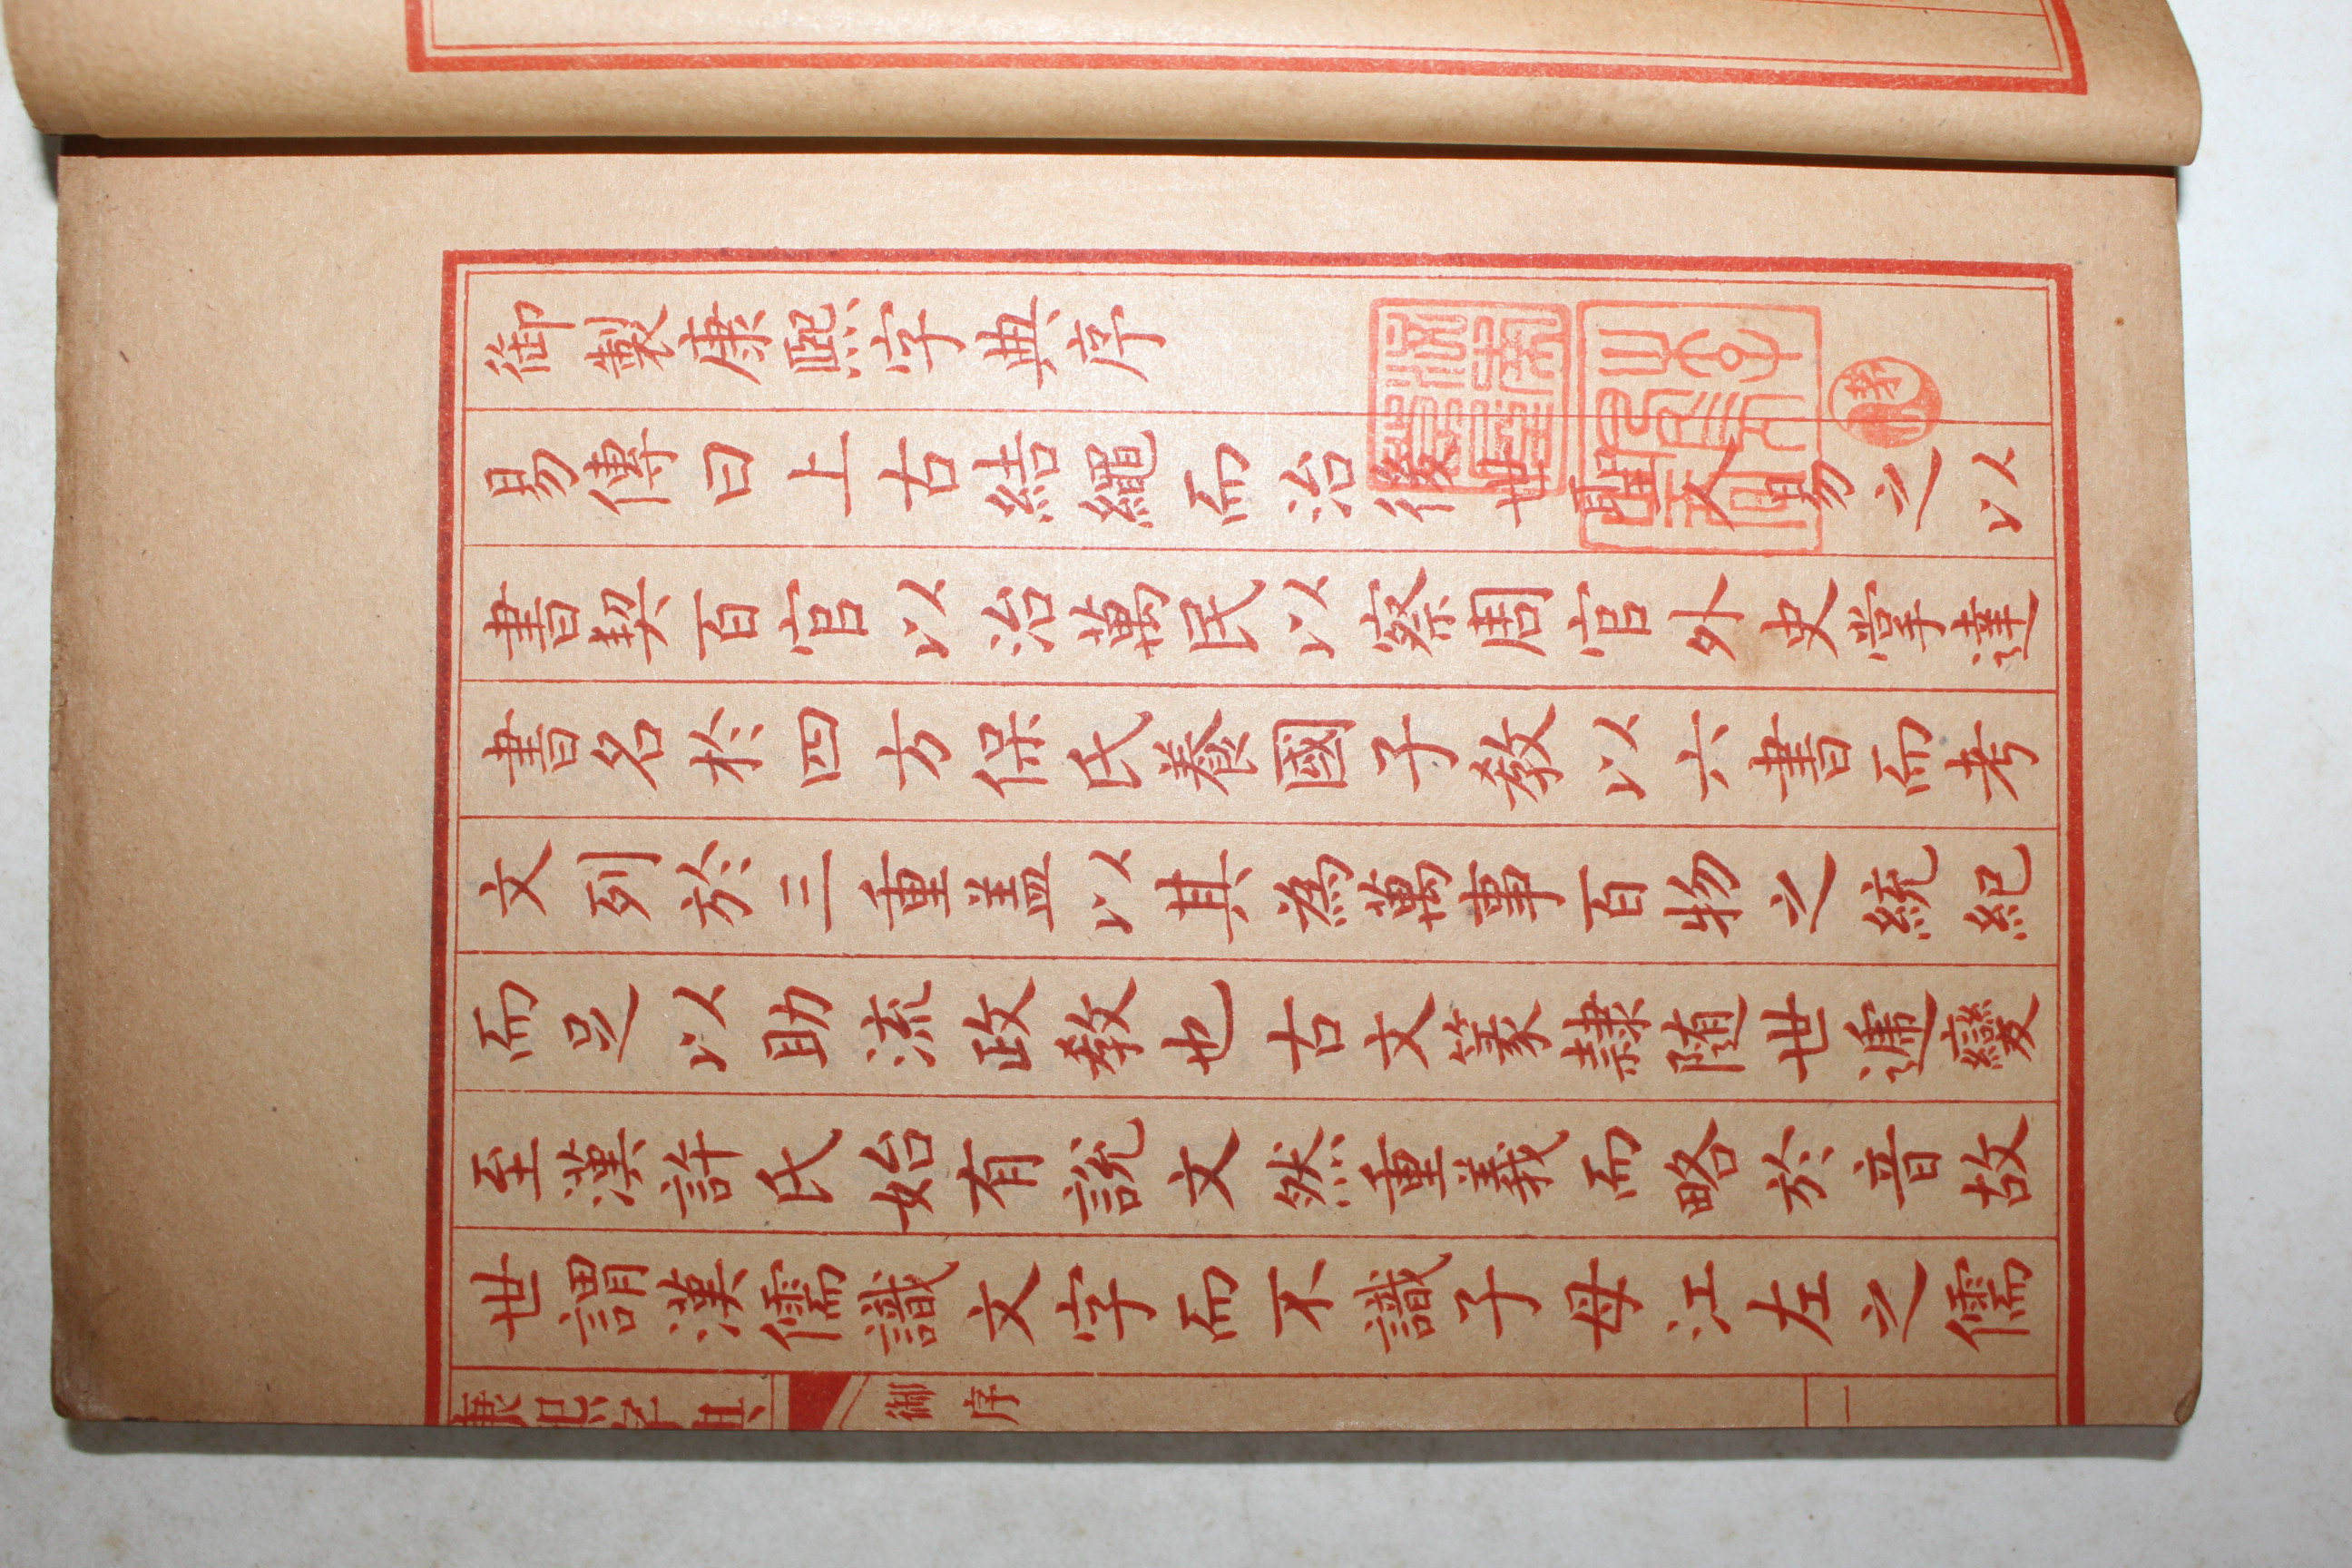 御製康熙字典序
易傳曰上古結繩而治後世聖人易之以
書契百官以治萬民以察周官外史掌達
書名於四方保氏養國子教以六書而考
文列於三重蓋以其為萬事百物之統紀
而足以助流政教也古文篆隸隨世遞變
至漢許氏始有說文然重義而略於音故
世謂漢儒識文字而不識子母江左之儒
康熙字典
御序
一